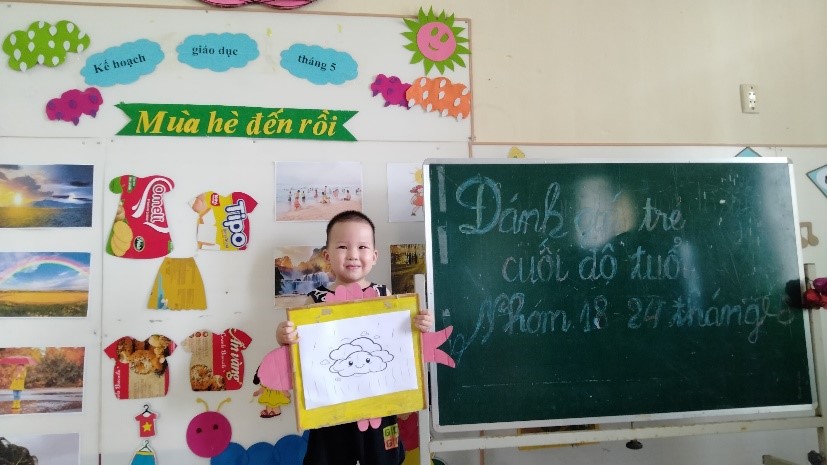 Kế hoạch
giáo dục
tháng 5
Mùa hè đến rồi
Omeli
Tipo
An vàng
Đánh giá trẻ
cuối độ tuổi
Nhóm 18-24 tháng